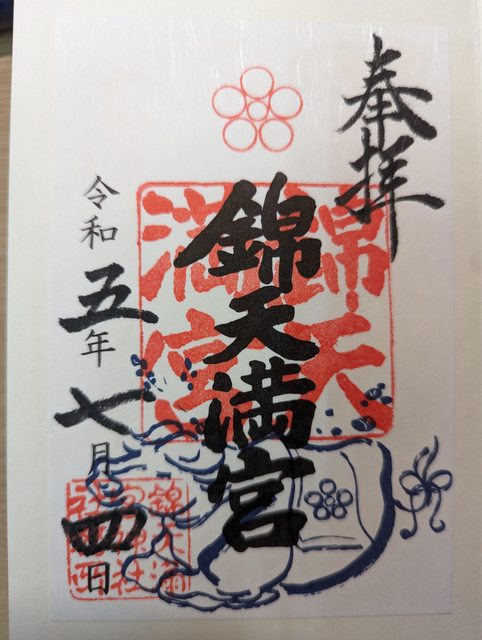 奉拝
錦天満宮
錦天満宮
令和五年七月四日